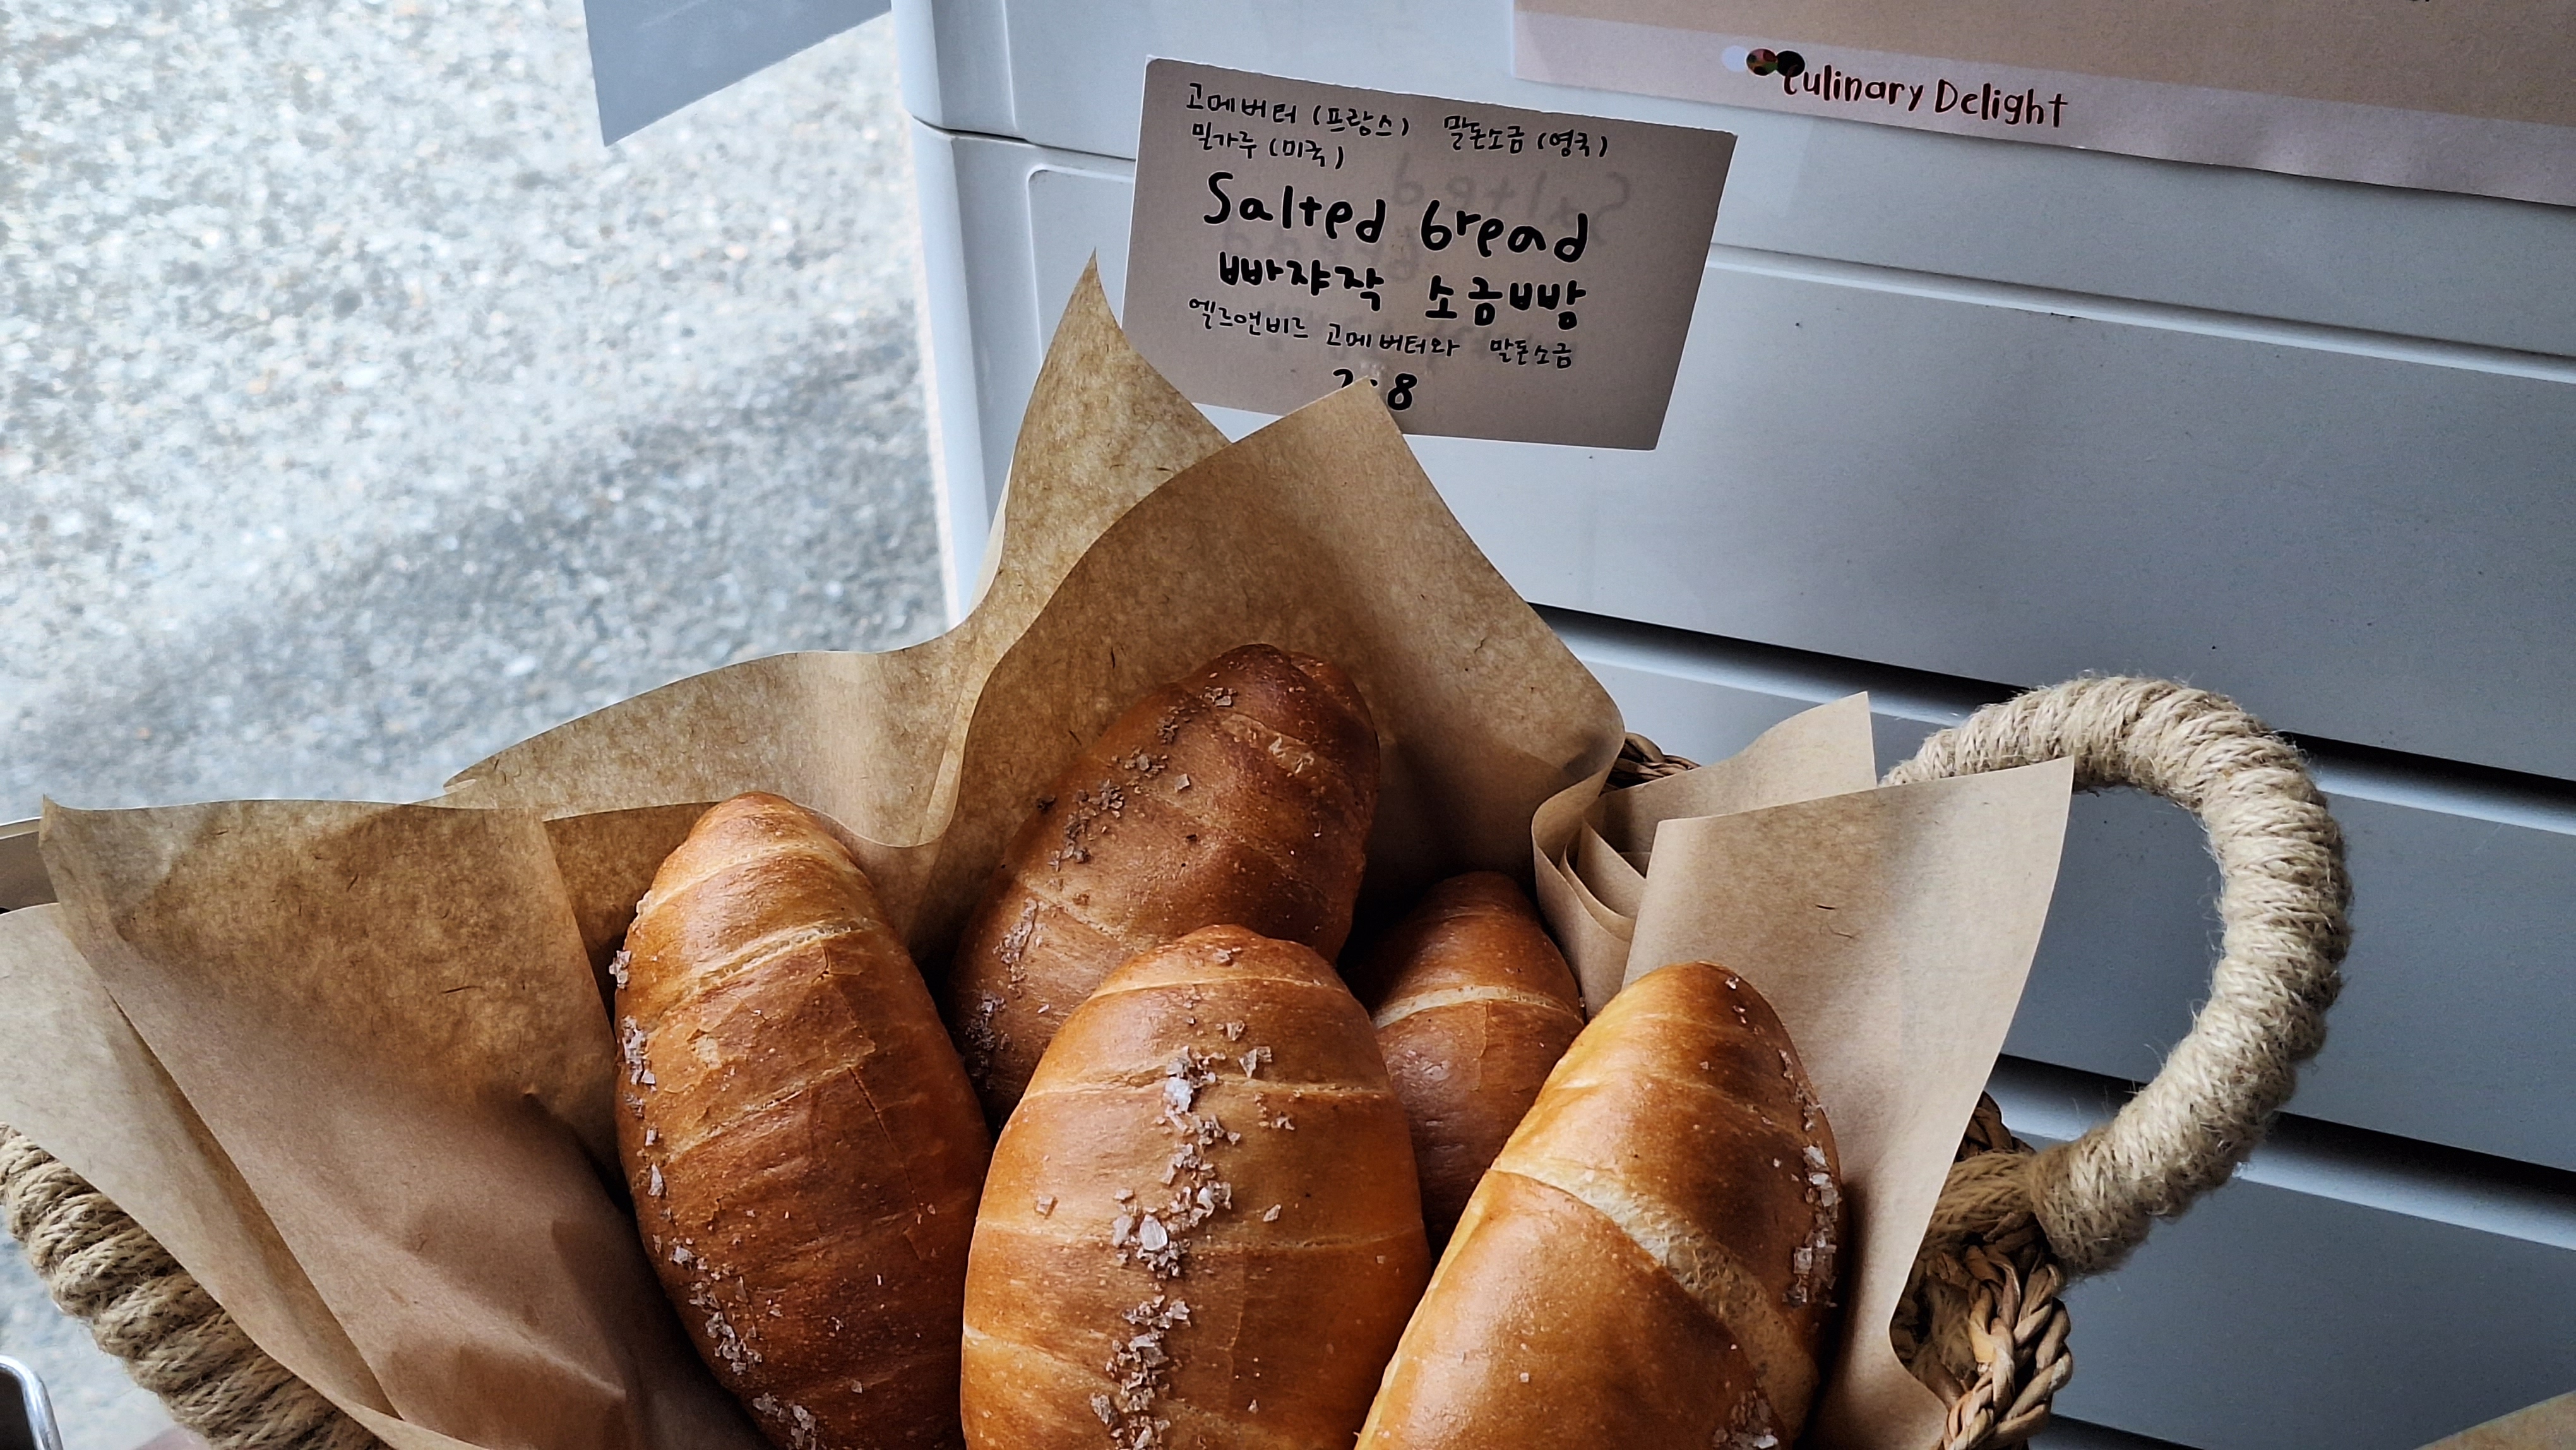 고메버터 (프랑스) 말돈소금 (영국)
밀가루 (미국)
Salted bread
빠쟈작 소금빵
엘르앤비르 고메버터와 말돈소금
Culinary Delight